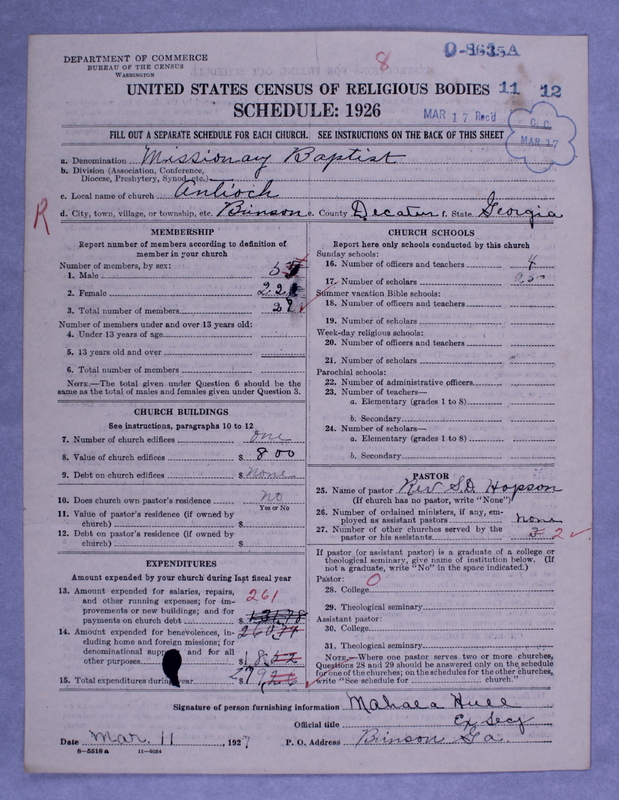 DEPARTMENT OF COMMERCE
BUREAU OF THE CENSUS
WASHINGTON
8
0-8635A
UNITED STATES CENSUS OF RELIGIOUS BODIES 11 12
SCHEDULE: 1926
MAR 17 Rec'd
C. C.
MAR 17
FILL OUT A SEPARATE SCHEDULE FOR EACH CHURCH. SEE INSTRUCTIONS ON THE BACK OF THIS SHEET
a. Denomination Missionary Baptist
b. Division (Association, Conference, Diocese, Presbytery, Synod, etc.)
c. Local name of church Antioch
R
d. City, town, village, or township, etc. Brinson e. County Decatur f. State Georgia
MEMBERSHIP
Report number of members according to definition of
member in your church
Number of members, by sex:
1. Male
2. Female
3. Total number of members
Number of members under and over 13 years old:
4. Under 13 years of age
5. 13 years old and over
6. Total number of members
NOTE.—The total given under Question 6 should be the
same as the total of males and females given under Question 3.
CHURCH BUILDINGS
See instructions, paragraphs 10 to 12
7. Number of church edifices one
8. Value of church edifices $ 800
9. Debt on church edifices $ None
10. Does church own pastor's residence No
Yes or No
11. Value of pastor's residence (if owned by
church) $
12. Debt on pastor's residence (if owned by
church) $
EXPENDITURES
Amount expended by your church during last fiscal year
13. Amount expended for salaries, repairs,
and other running expenses; for im-
provements or new buildings; and for
payments on church debt $
261
14. Amount expended for benevolences, in-
cluding home and foreign missions; for
denominational support and for all
other purposes $
15. Total expenditures during year $
CHURCH SCHOOLS
Report here only schools conducted by this church
Sunday schools:
16. Number of officers and teachers
17. Number of scholars
Summer vacation Bible schools:
18. Number of officers and teachers
19. Number of scholars
Week-day religious schools:
20. Number of officers and teachers
21. Number of scholars
Parochial schools:
22. Number of administrative officers
23. Number of teachers—
a. Elementary (grades 1 to 8)
b. Secondary
24. Number of scholars—
a. Elementary (grades 1 to 8)
b. Secondary
PASTOR
25. Name of pastor Rev S.D. Hopson
(If church has no pastor, write "None")
26. Number of ordained ministers, if any, em-
ployed as assistant pastors None
27. Number of other churches served by the
pastor or his assistants 2
If pastor (or assistant pastor) is a graduate of a college or
theological seminary, give name of institution below. (If
not a graduate, write "No" in the space indicated.)
Pastor: 0
28. College
29. Theological seminary
Assistant pastor:
30. College
31. Theological seminary
NOTE.—Where one pastor serves two or more churches,
Questions 28 and 29 should be answered only on the schedule
for one of the churches; on the schedules for the other churches,
write "See schedule for church."
Signature of person furnishing information Mahala Hull
Official title Ex Secy
Date Mar. 11, 1927 P. O. Address Brinson Ga
8—5518a 11—9264